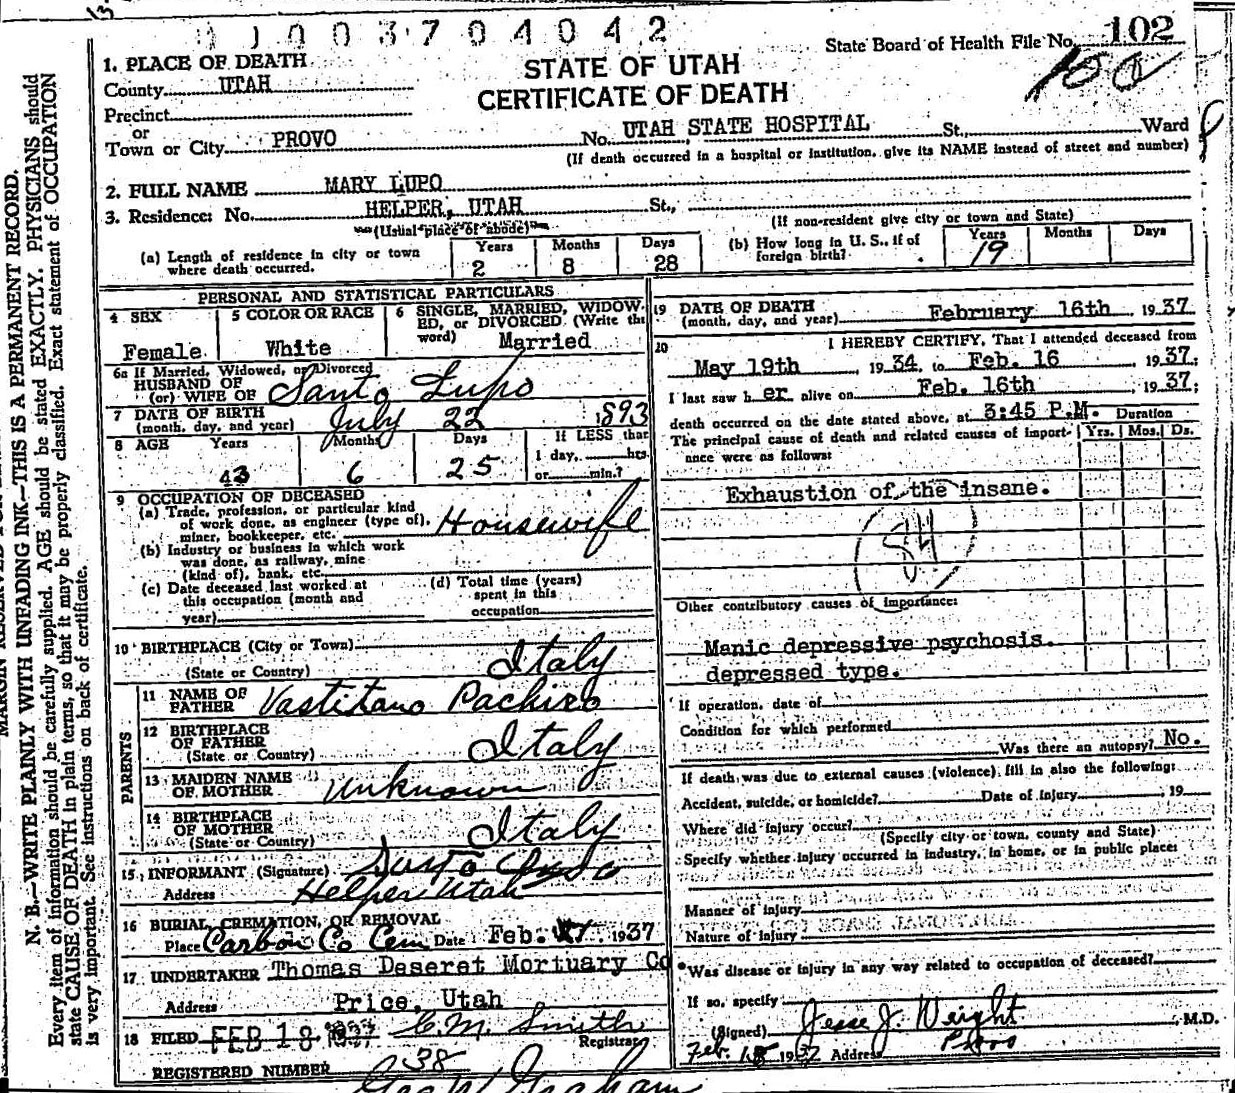 13
0 1 0 0 3 7 0 4 0 4 2
State Board of Health File No. 102
STATE OF UTAH
CERTIFICATE OF DEATH
1. PLACE OF DEATH
County UTAH
Precinct
or
Town or City PROVO No. UTAH STATE HOSPITAL St., Ward
(If death occurred in a hospital or institution, give its NAME instead of street and number)
2. FULL NAME MARY LUPO
3. Residence: No. HELPER, UTAH St.,
(Usual place of abode) (If non-resident give city or town and State)
(a) Length of residence in city or town where death occurred. Years 2 Months 8 Days 28
(b) How long in U. S., if of foreign birth? Years 19 Months Days
PERSONAL AND STATISTICAL PARTICULARS
4 SEX Female
5 COLOR OR RACE White
6 SINGLE, MARRIED, WIDOWED, or DIVORCED (Write the word) Married
6a If Married, Widowed, or Divorced
HUSBAND OF
(or) WIFE OF Santo Lupo
7 DATE OF BIRTH
(month, day, and year) July 22 1893
8 AGE Years 43 Months 6 Days 25 If LESS than 1 day, hrs. or min.?
9 OCCUPATION OF DECEASED
(a) Trade, profession, or particular kind
of work done, as engineer (type of),
miner, bookkeeper, etc. Housewife
(b) Industry or business in which work
was done, as railway, mine
(kind of), bank, etc.
(c) Date deceased last worked at
this occupation (month and
year)
(d) Total time (years)
spent in this
occupation
10 BIRTHPLACE (City or Town)
(State or Country) Italy
PARENTS
11 NAME OF
FATHER Vastitano Pachiro
12 BIRTHPLACE
OF FATHER
(State or Country) Italy
13 MAIDEN NAME
OF MOTHER Unknown
14 BIRTHPLACE
OF MOTHER
(State or Country) Italy
15 INFORMANT (Signature)
Address Helper Utah
16 BURIAL, CREMATION, OR REMOVAL
Place Carbon Co Cem Date Feb. 1937
17 UNDERTAKER Thomas Deseret Mortuary Co
Address Price, Utah
18 FILED FEB 18 1937 C. M. Smith
Registrar
REGISTERED NUMBER 38
19 DATE OF DEATH
(month, day, and year) February 16th 1937
20 I HEREBY CERTIFY, That I attended deceased from
May 19th, 1934, to Feb. 16 1937;
I last saw her alive on Feb. 16th, 1937;
death occurred on the date stated above, at 3:45 P.M. Duration
The principal cause of death and related causes of importance were as follows: Yrs. Mos. Ds.
Exhaustion of the insane.
84
Other contributory causes of importance:
Manic depressive psychosis.
depressed type.
If operation, date of
Condition for which performed
Was there an autopsy? No.
If death was due to external causes (violence) fill in also the following:
Accident, suicide, or homicide? Date of injury , 19
Where did injury occur?
(Specify city or town, county and State)
Specify whether injury occurred in industry, in home, or in public place:
Manner of injury
Nature of injury
Was disease or injury in any way related to occupation of deceased?
If so, specify
(Signed) Jesse J. Weight, M.D.
Feb. 18 1937 Address Provo
N. B.—WRITE PLAINLY WITH UNFADING INK—THIS IS A PERMANENT RECORD.
Every item of information should be carefully supplied. AGE should be stated EXACTLY. PHYSICIANS should
state CAUSE OF DEATH in plain terms, so that it may be properly classified. Exact statement of OCCUPATION
is very important. See instructions on back of certificate.